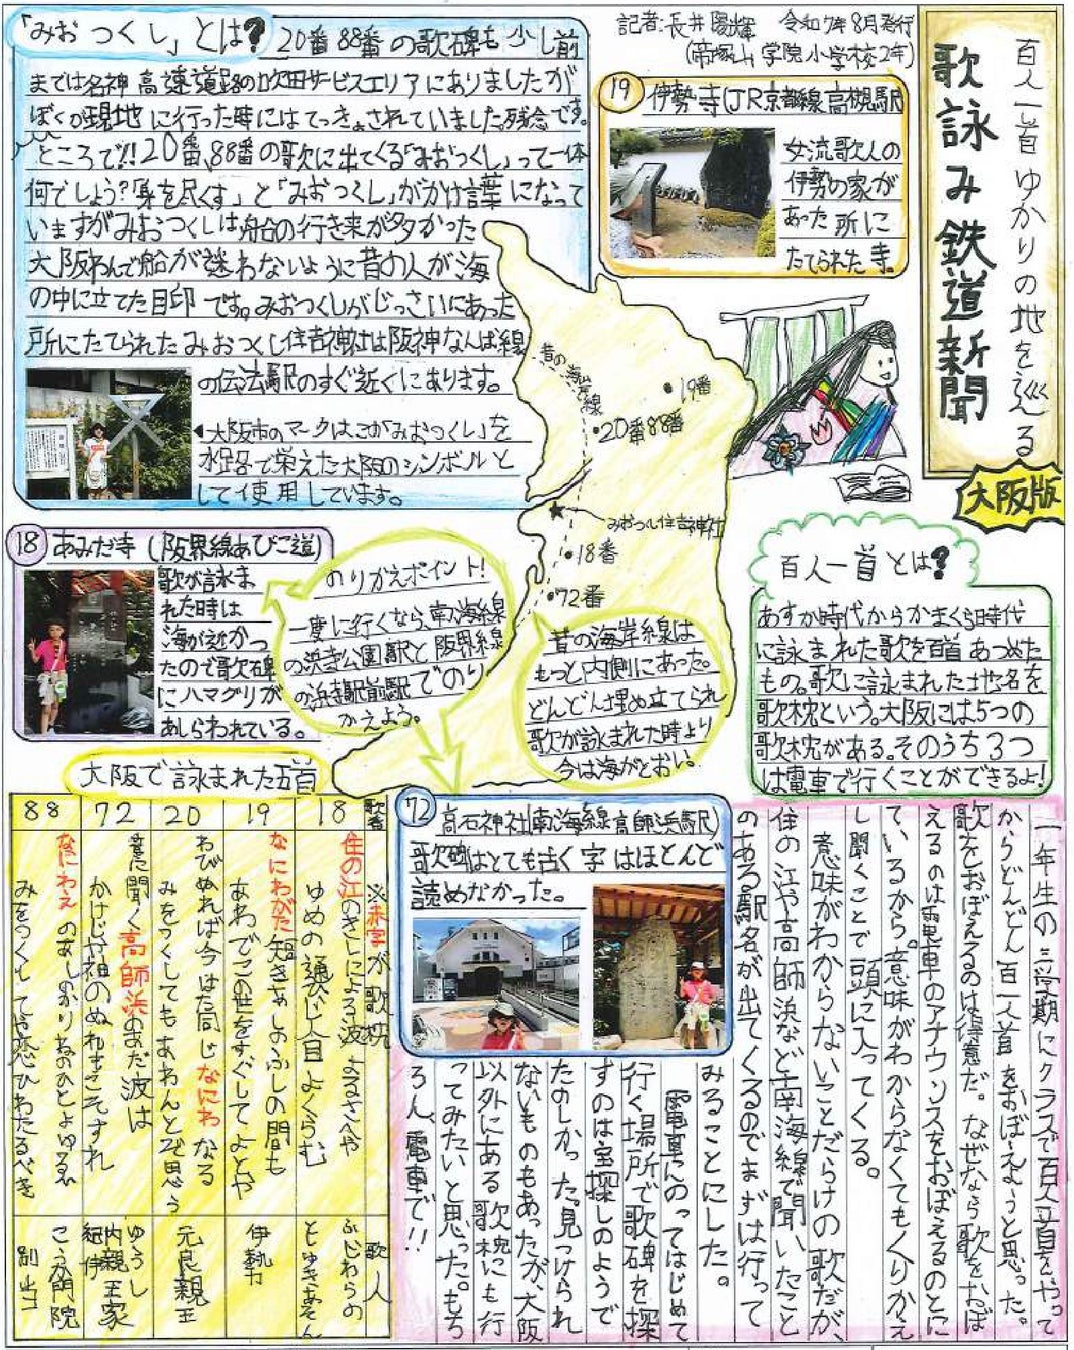 百人一首ゆかりの地を巡る
歌詠み鉄道新聞
大阪版
記者:長井陽輝 令和7年8月発行
(帝塚山学院小学校2年)
「みおつくし」とは?
20番88番の歌碑も少し前
までは名神高速道路の吹田サービスエリアにありましたが
ぼくが現地に行った時にはてっきょされていました。残念です。
ところで!!20番、88番の歌に出てくる「みおつくし」って一体
何でしょう?「身を尽くす」と「みおつくし」がかけ言葉になって
いますがみおつくしは船の行き来が多かった
大阪わんで船が迷わないように昔の人が海
の中に立てた目印です。みおつくしがじっさいにあった
所にたてられたみおつくし住吉神社は阪神なんば線
の伝法駅のすぐ近くにあります。
◀大阪市のマークはこの「みおつくし」を
水路で栄えた大阪のシンボルと
して使用しています。
19 伊勢寺(JR京都線高槻駅)
女流歌人の
伊勢の家が
あった所に
たてられた寺。
昔の海岸線
19番
20番88番
みおつくし住吉神社
18番
72番
18 あみだ寺(阪界線あびこ道)
歌が詠ま
れた時は
海が近かっ
たので歌碑
にハマグリが
あしらわれている。
のりかえポイント!
一度に行くなら、南海線
の浜寺公園駅と阪界線
の浜寺駅前駅でのり
かえよう。
昔の海岸線は
もっと内側にあった。
どんどん埋め立てられ
歌が詠まれた時より
今は海がとおい。
百人一首とは?
あすか時代からかまくら時代
に詠まれた歌を百首あつめた
もの。歌に詠まれた地名を
歌枕という。大阪には5つの
歌枕がある。そのうち3つ
は電車で行くことができるよ!
大阪で詠まれた五首
歌番 ※赤字が歌枕 歌人
18 住の江のきしによる波よるさへや
ゆめの通ひじ人目よくらむ
ふじわらの
としゆきあそん
19 なにわがた短きあしのふしの間も
あわでこの世をすぐしてよとや
伊勢
20 わびぬれば今はた同じなにわなる
みをつくしてもあわんとぞ思う
元良親王
72 音に聞く高師浜のあだ波は
かけじや袖のぬれもこそすれ
ゆうし
内親王家
紀伊
88 なにわえのあしのかりねのひとよゆえ
みをつくしてや恋ひわたるべき
こうか門院
別当
72 高石神社(南海線高師浜駅)
歌碑はとても古く字はほとんど
読めなかった。
一年生の三学期にクラスで百人一首をやって
からどんどん百人一首をおぼえようと思った。
歌をおぼえるのは得意だ。なぜなら歌をおぼ
えるのは電車のアナウンスをおぼえるのとに
ているから。意味がわからなくてもくりかえ
し聞くことで頭に入ってくる。
意味がわからないことだらけの歌だが、
住の江や高師浜など南海線で聞いたこと
のある駅名が出てくるのでまずは行って
みることにした。
電車にのってはじめて
行く場所で歌碑を探
すのは宝探しのようで
たのしかった。見つけられ
ないものもあったが、大阪
以外にある歌枕にも行
ってみたいと思った。もち
ろん電車で!!